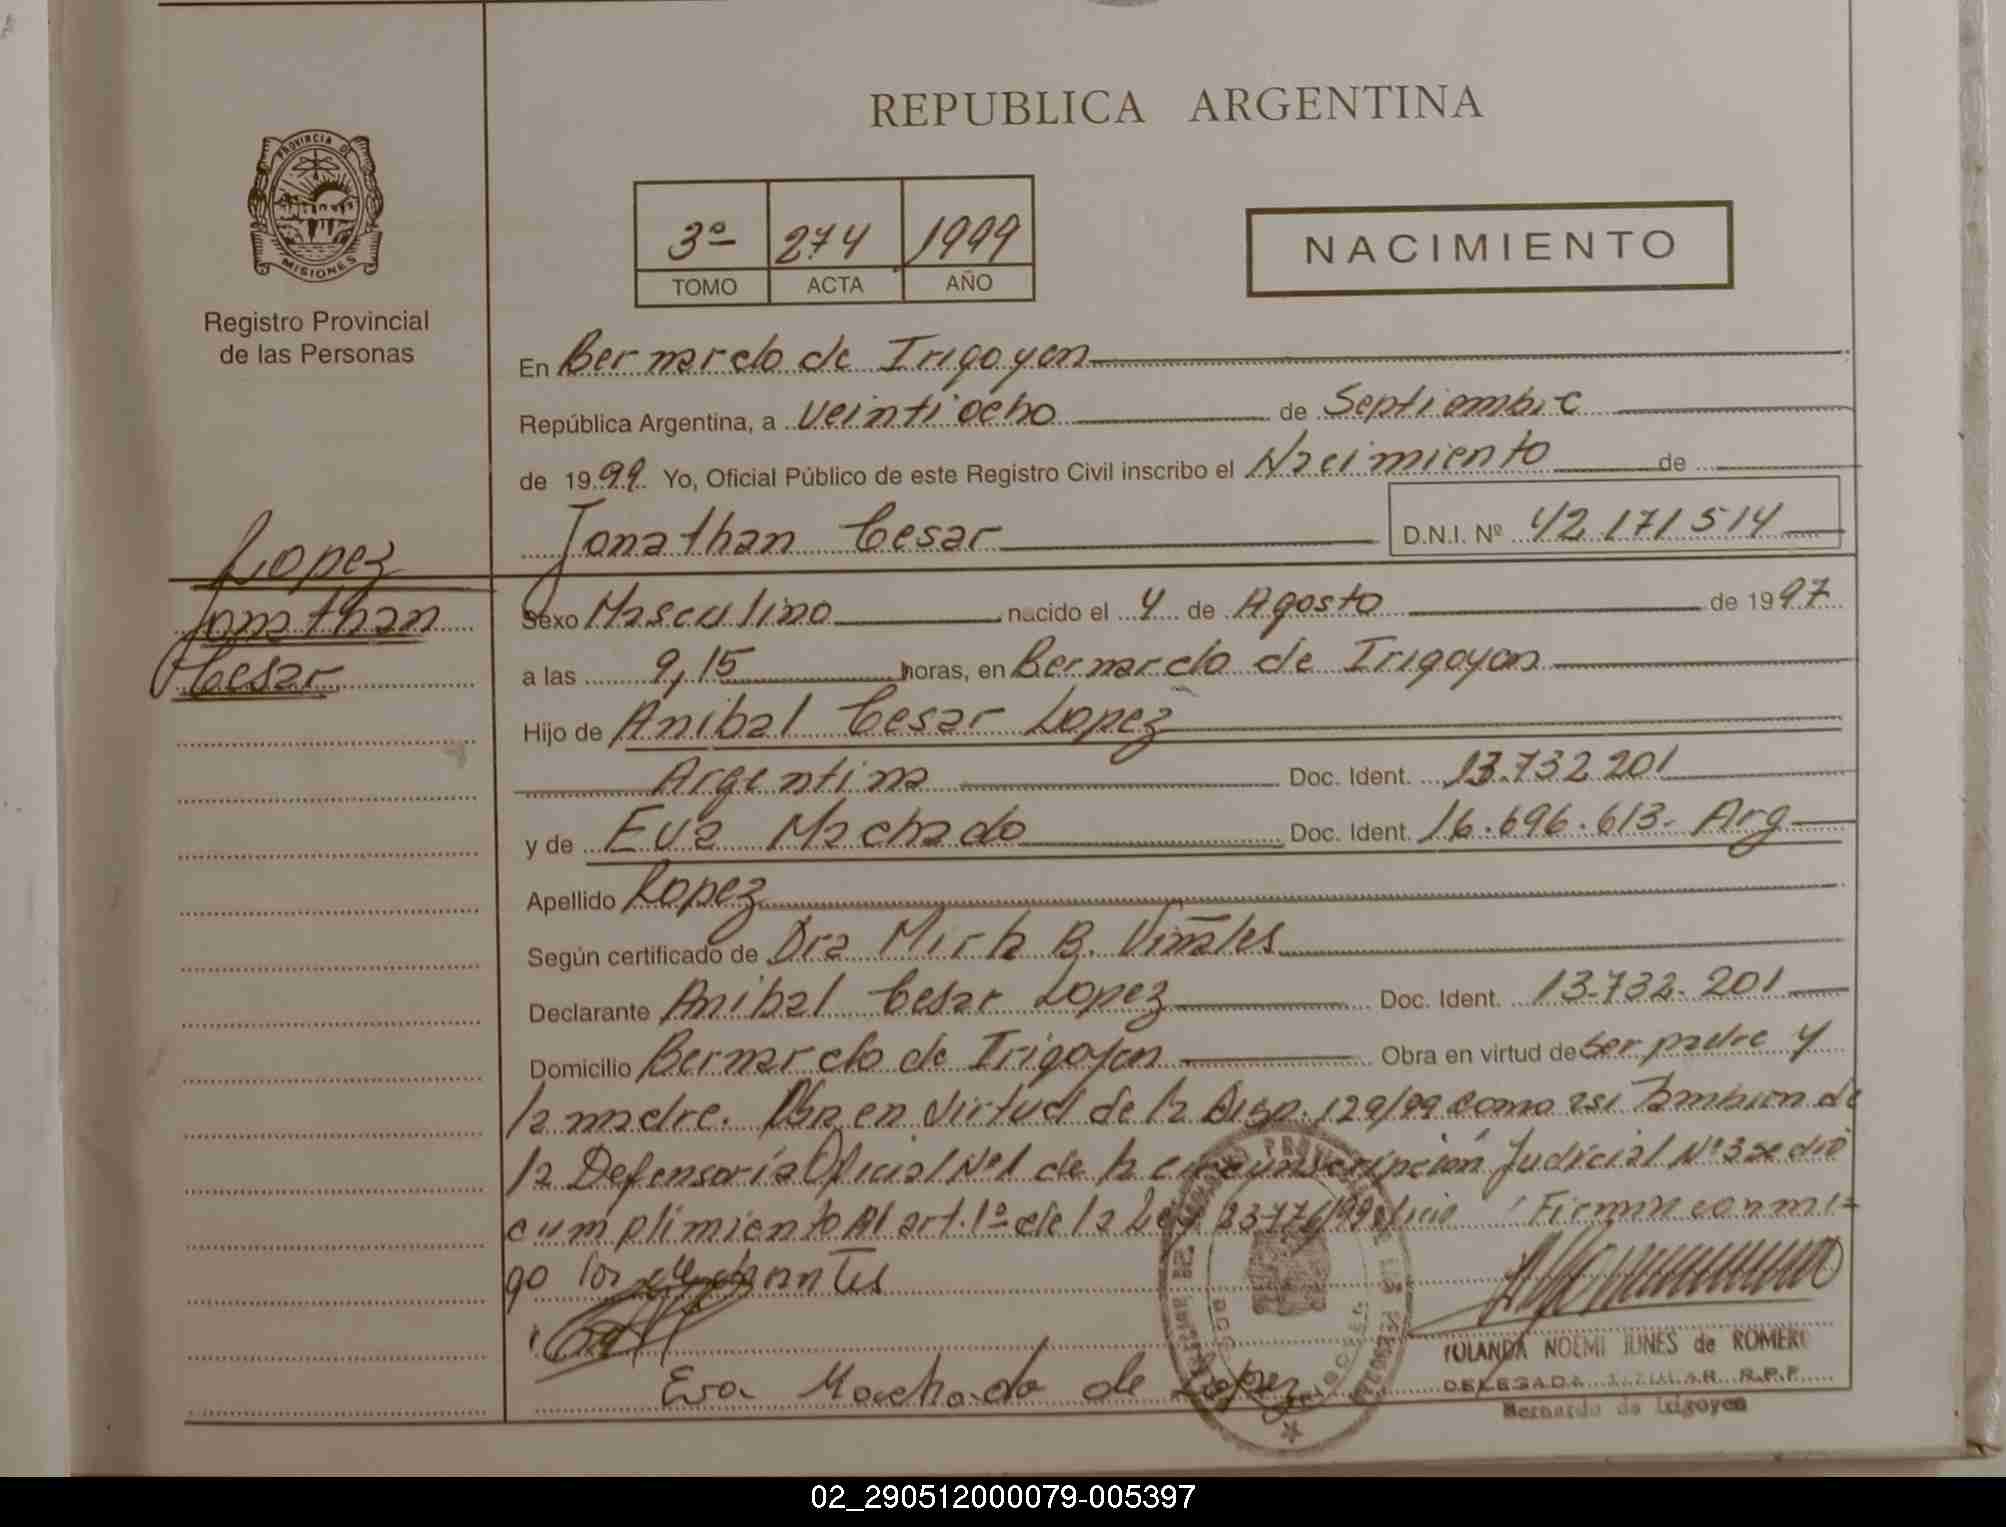 REPUBLICA ARGENTINA
PROVINCIA DE
MISIONES
Registro Provincial
de las Personas
3º 274 1999
TOMO ACTA AÑO
NACIMIENTO
En Bernardo de Irigoyen
República Argentina, a Veintiocho de Septiembre
de 1999. Yo, Oficial Público de este Registro Civil inscribo el Nacimiento de
Jonathan Cesar D.N.I. Nº 42.171.514
Lopez
Jonathan
Cesar
Sexo Masculino nacido el 4 de Agosto de 1997
a las 9,15 horas, en Bernardo de Irigoyen
Hijo de Anibal Cesar Lopez
Argentina Doc. Ident. 13.732.201
y de Eva Machado Doc. Ident. 16.696.613. Arg
Apellido Lopez
Según certificado de Dra Mirta B. Viñales
Declarante Anibal Cesar Lopez Doc. Ident. 13.732.201
Domicilio Bernardo de Irigoyen Obra en virtud de ser padre y
la madre. Obra en virtud de la Disp. 129/99 como asi Tambien de
la Defensoría Oficial Nº1 de la circunscripción Judicial Nº3 se dió
cumplimiento Al art. 1º de la Ley 23776/99 Firman conmi-
go los
Eva Machado de Lopez
YOLANDA NOEMI JUNES de ROMERO
DELEGADA TITULAR R.P.P.
Bernardo de Irigoyen
02_290512000079-005397